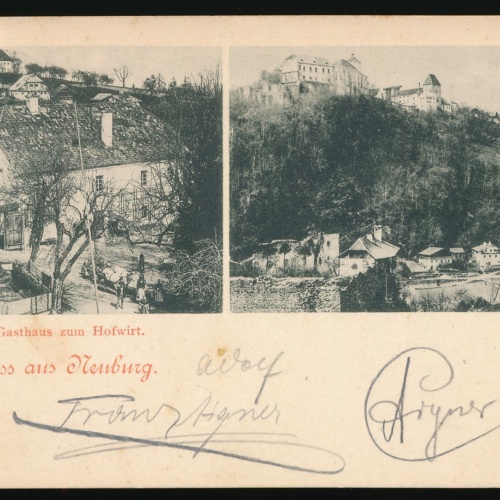 Gasthaus zum Hofwirt.
ss aus Neuburg.
Adolf
Franz Aigner
Aigner